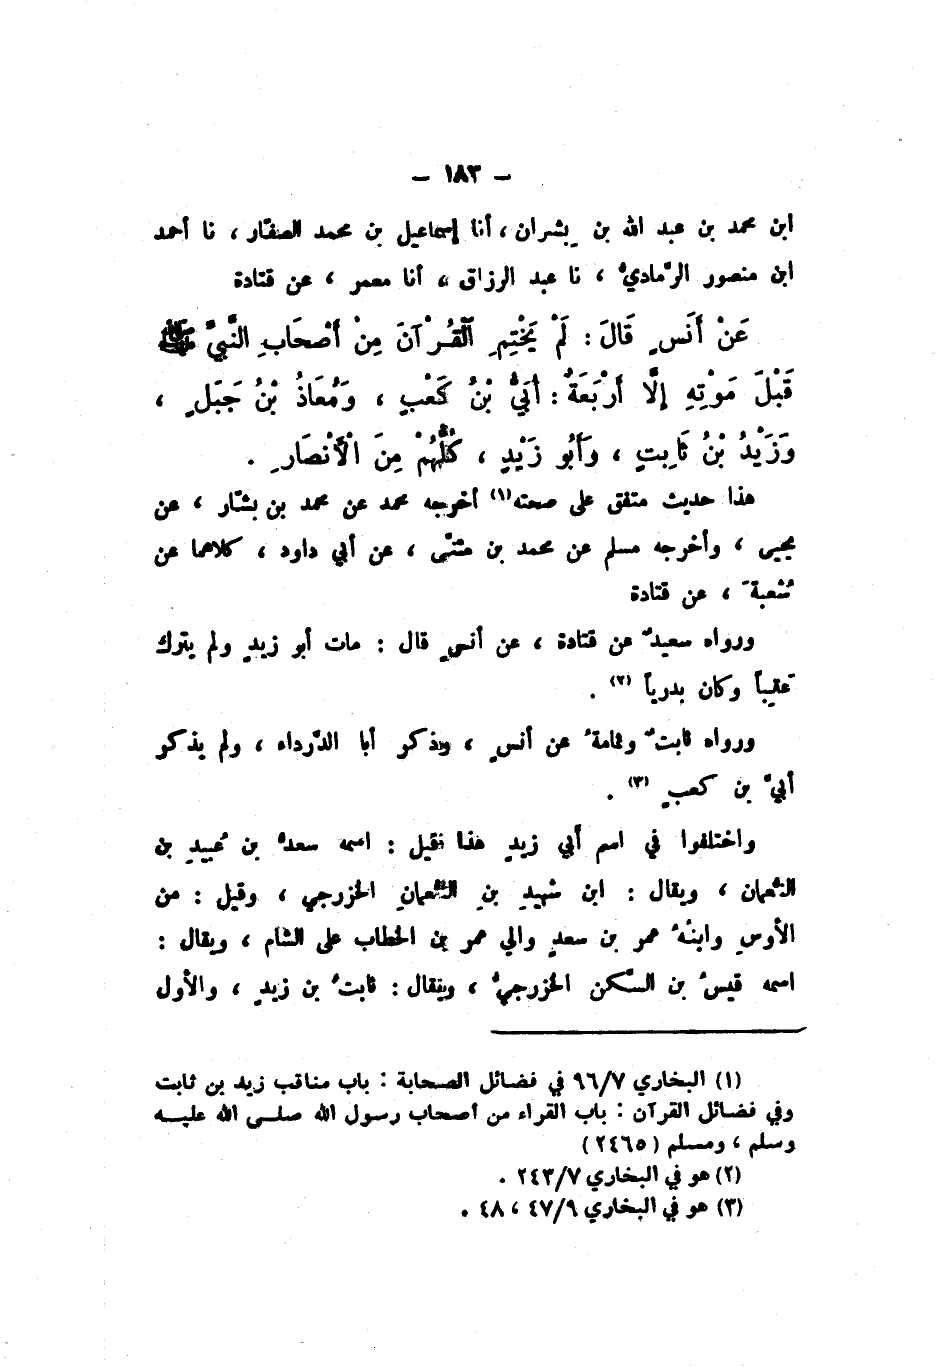 – ١٨٣ –
ابن محمد بن عبد الله بن بِشران ، أنا إسماعيل بن محمد الصفّار ، نا أحمد
ابن منصور الرَّماديُّ ، نا عبد الرزاق ، أنا معمر ، عن قتادة
عَنْ أَنَسٍ قَالَ : لَمْ يَخْتِمِ الْقُرْآنَ مِنْ أَصْحَابِ النَّبِيِّ ﷺ
قَبْلَ مَوْتِهِ إِلَّا أَرْبَعَةٌ : أُبَيُّ بْنُ كَعْبٍ ، وَمُعَاذُ بْنُ جَبَلٍ ،
وَزَيْدُ بْنُ ثَابِتٍ ، وَأَبُو زَيْدٍ ، كُلُّهُمْ مِنَ الْأَنْصَارِ .
هذا حديث متفق على صحته (١) أخرجه محمد عن محمد بن بشّار ، عن
يحيى ، وأخرجه مسلم عن محمد بن مثنّى ، عن أبي داود ، كلاهما عن
شُعبةَ ، عن قتادة
ورواه سعيدٌ عن قتادة ، عن أنسٍ قال : مات أبو زيدٍ ولم يترك
عَقِباً وكان بدرياً (٢) .
ورواه ثابتٌ وثمامةُ عن أنسٍ ، ويذكر أبا الدَّرداء ، ولم يذكر
أبيَّ بن كعبٍ (٣) .
واختلفوا في اسم أبي زيدٍ هذا فقيل : اسمه سعدُ بن عُبيدِ بن
النُّعمان ، ويقال : ابن شهيدِ بنِ النُّعمانِ الخزرجي ، وقيل : من
الأوسِ وابنُهُ عمر بن سعدٍ والي عمر بن الخطاب على الشام ، ويقال :
اسمه قيسُ بن السَّكن الخزرجيُّ ، ويقال : ثابتُ بن زيدٍ ، والأول
(١) البخاري ٩٦/٧ في فضائل الصحابة : باب مناقب زيد بن ثابت
وفي فضائل القرآن : باب القراء من أصحاب رسول الله صلى الله عليه
وسلم ، ومسلم (٢٤٦٥)
(٢) هو في البخاري ٢٤٣/٧ .
(٣) هو في البخاري ٤٧/٩ ، ٤٨ .